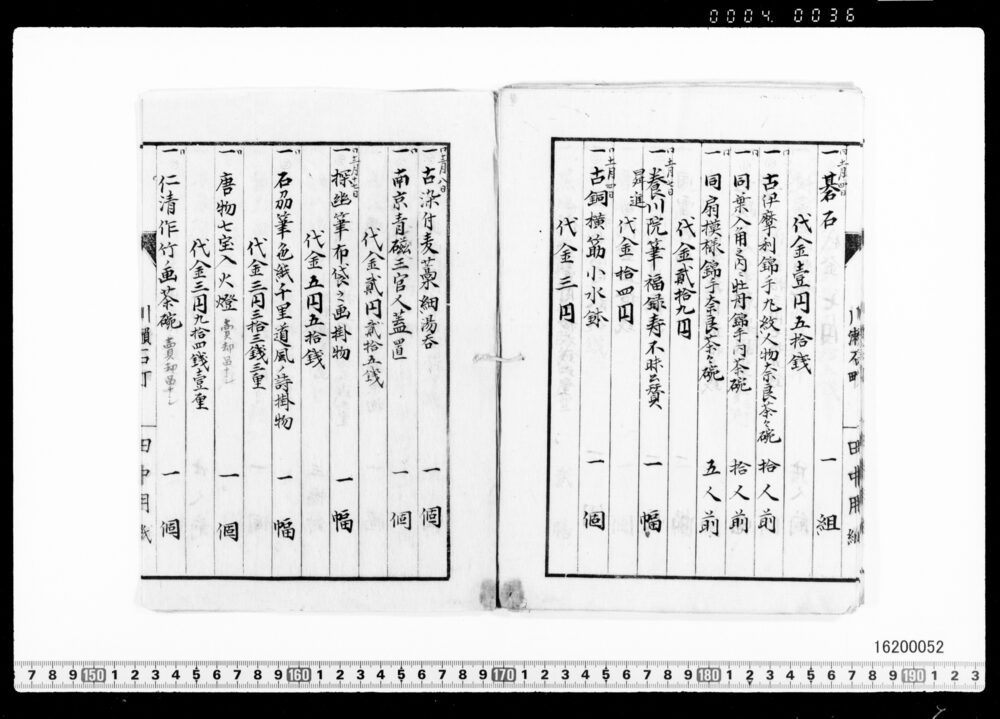 0004 0036
川瀬石町 田中用紙
十一月四日
一 碁石 一組
代金壹円五拾銭
一 古伊摩利錦手丸紋人物奈良茶々碗 拾人前
一 同葉入角之内ニ牡丹錦手内茶碗 拾人前
一 同扇模様錦手奈良茶々碗 五人前
代金貳拾九円
一 養川院筆福録寿不昧公賛 一幅
昇進
代金一拾四円
十一月四日
一 古銅横筋小水鉢 一個
代金三円
一 古染付麦藁細湯呑 一個
一 南京青磁三宮人蓋置 一個
代金貳円貳拾五銭
一 探幽筆布袋之画掛物 一幅
代金五円五拾銭
一 石刕筆色紙千里道風ノ詩掛物 一幅
代金三円三拾三銭三厘
一 唐物七宝入火燈 一個
代金三円九拾四銭壹厘
一 仁清作竹ノ画茶碗 一個
川瀬石町 田中用紙
16200052
7 8 9 150 1 2 3 4 5 6 7 8 9 160 1 2 3 4 5 6 7 8 9 170 1 2 3 4 5 6 7 8 9 180 1 2 3 4 5 6 7 8 9 190 1 2 3